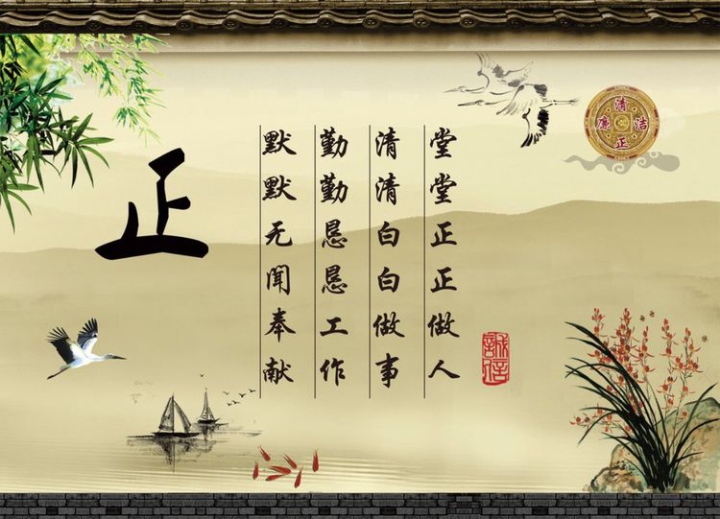 正
堂堂正正做人
清清白白做事
勤勤恳恳工作
默默无闻奉献
清正廉洁